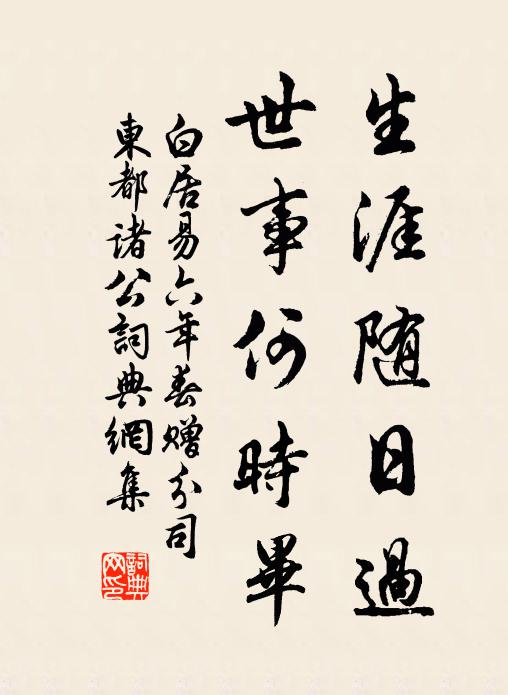 生涯随日過
世事何時畢
白居易六年春贈分司
東都诸公詞典網集
詞典网印